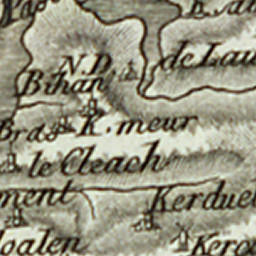 N.D.
de Lau
Bihan
Bras
K. meur
le Cleach
ment
Kerduel
oalen